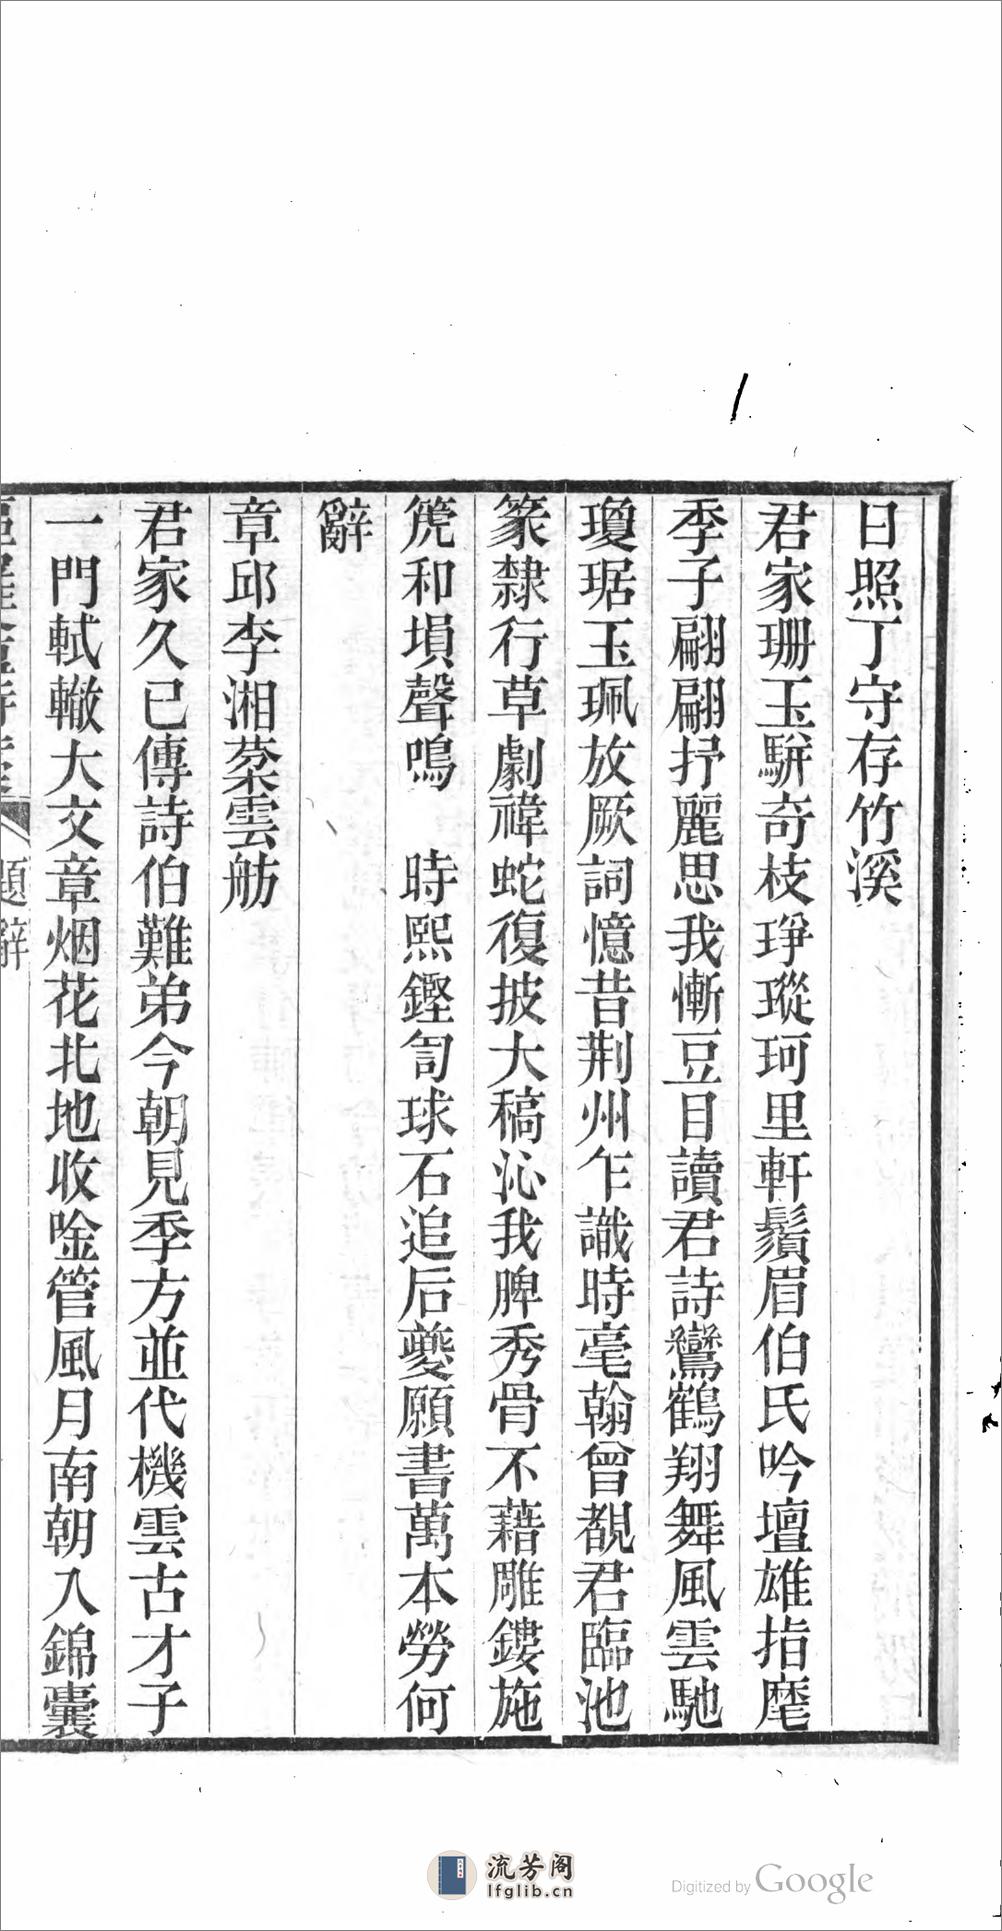 日照丁守存竹溪
君家珊玉騈奇枝琤瑽珂里軒鬚眉伯氏吟壇雄指麾
季子翩翩抒麗思我慚豆目讀君詩鸞鶴翔舞風雲馳
瓊琚玉珮放厥詞憶昔荆州乍識時毫翰曾覩君臨池
篆隸行草劇禕蛇復披大稿沁我脾秀骨不藉雕鏤施
箎和塤聲鳴　時熙鏗訇球石追后夔願書萬本勞何
辭
章邱李湘棻雲舫
君家久已傳詩伯難弟今朝見季方並代機雲古才子
一門軾轍大文章烟花北地收唫管風月南朝入錦囊
題辭
流芳阁
lfglib.cn
Digitized by Google